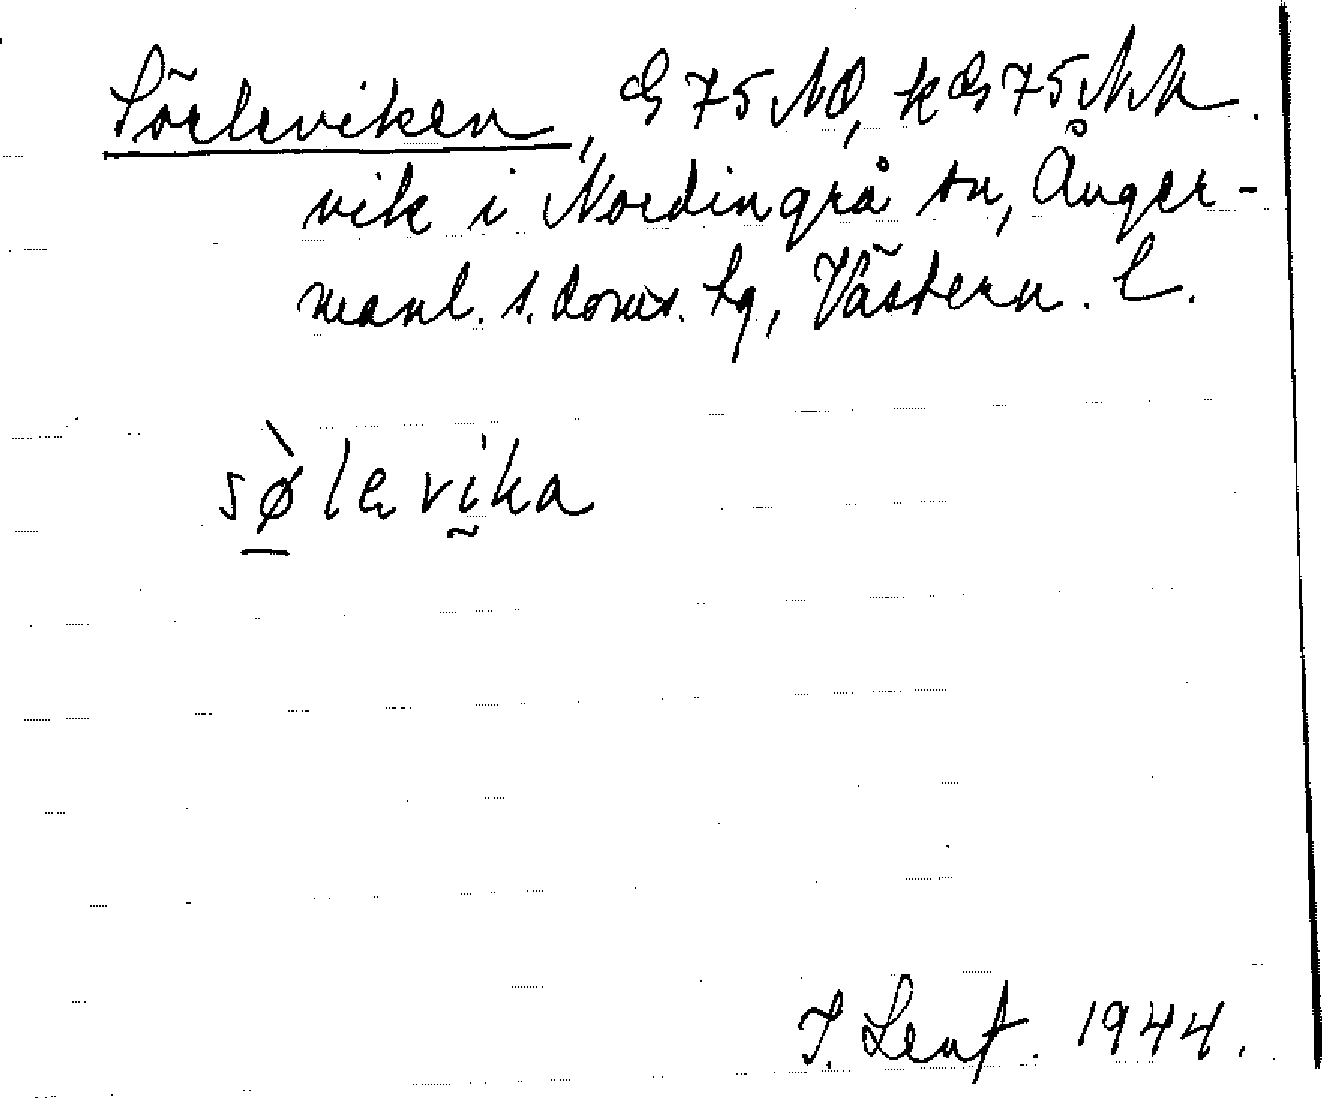 Sörleviken, G 75 NO, k G 75 NN.
vik i Nordingrå sn, Ånger-
manl. s. doms. tg, Västern. l.
sø̀levika
I. Lent. 1944.